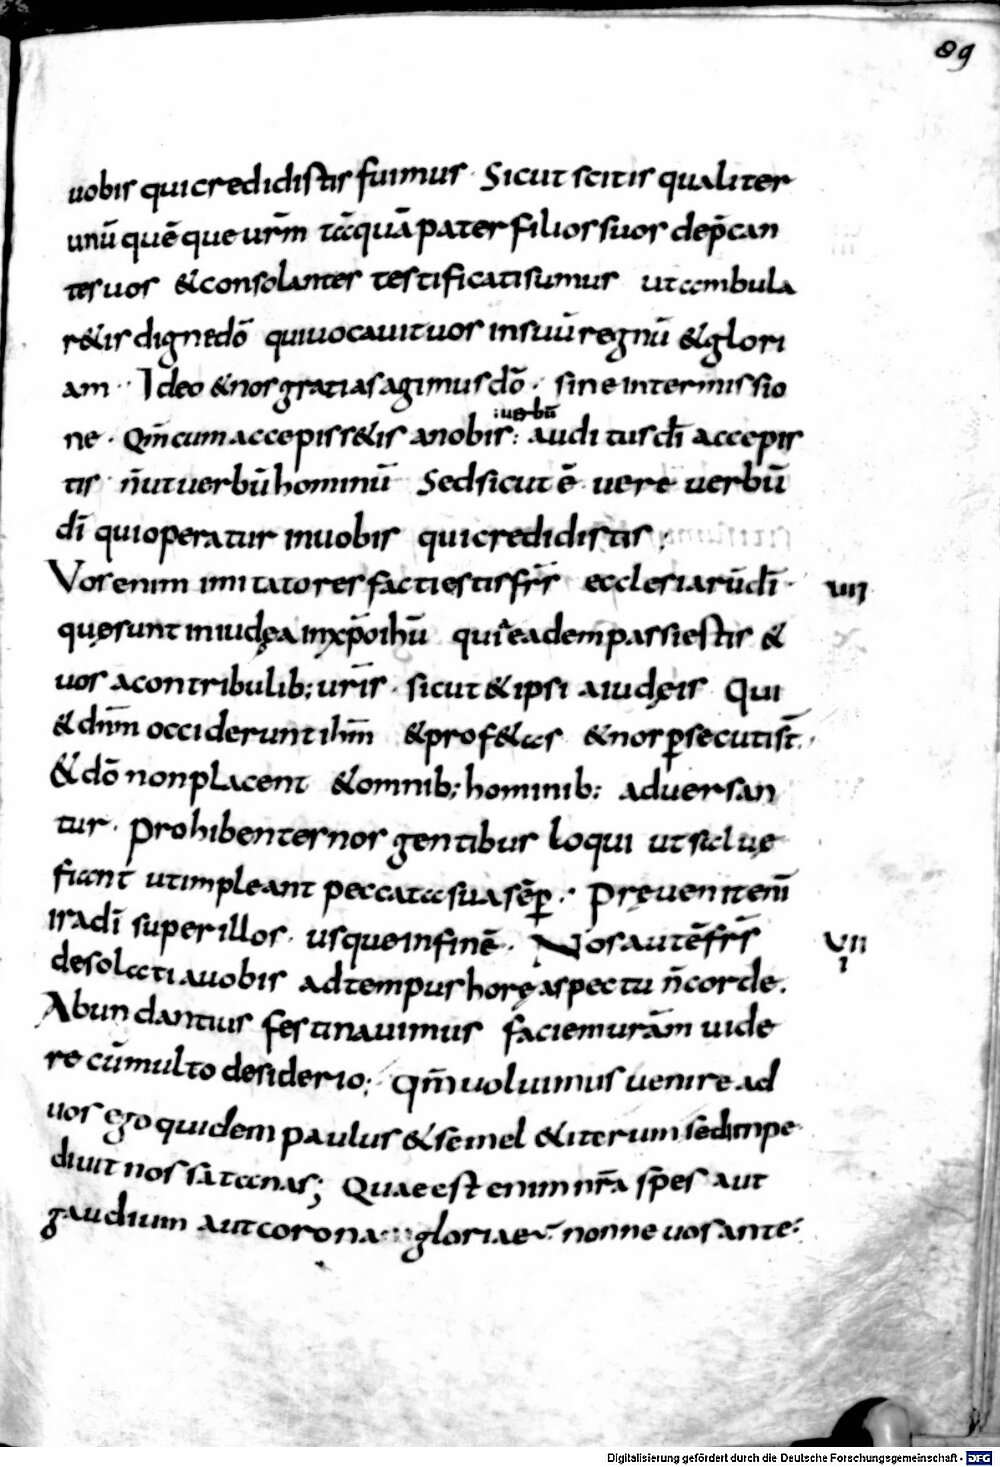 89
uobis qui credidistis fuimus · Sicut scitis qualiter
unū quē que urm̄ tāquā pater filios suos dep̄can
tes uos & consolantes testificati sumus ut ambula
r&is digne dō qui uocauit uos in suū regnū & glori
am ·· Ideo & nos gratias agimus dō · sine intermissio
:uerbū
ne · Qm̄ cum accepiss&is a nobis : auditus dī accepis
tis · n̄ ut uerbū hominū Sed sicut ē uere uerbū
dī qui operatur in uobis qui credidistis ;
Vos enim imitatores facti estis frs̄ ecclesiarū dī · VIII
quę sunt in iudęa in xp̄o ihū qui eadem passi estis &
uos a contribulib; uris̄ · sicut & ipsi a iudęis Qui
& dnm̄ occiderunt ihm̄ & prof&as & nos p̱secuti st̄ ·
& dō non placent & omnib; hominib; aduersan
tur · prohibentes nos gentibus loqui ut saluę
fiant ut impleant peccata sua sēp̱ · Pręuenit enī
ira dī super illos · usque in finē · Nos autē frs̄ VII
I
desolati a uobis ad tempus horę aspectu n̄ corde ·
Abundantius festinauimus faciem urām uide
re cū multo desiderio ; Qm̄ uoluimus uenire ad
uos ego quidem paulus & semel & iterum sed impe
diuit nos satanas ; Quae est enim nr̄a spes aut
gaudium aut corona gloriae nonne uos ante
Digitalisierung gefördert durch die Deutsche Forschungsgemeinschaft - DFG